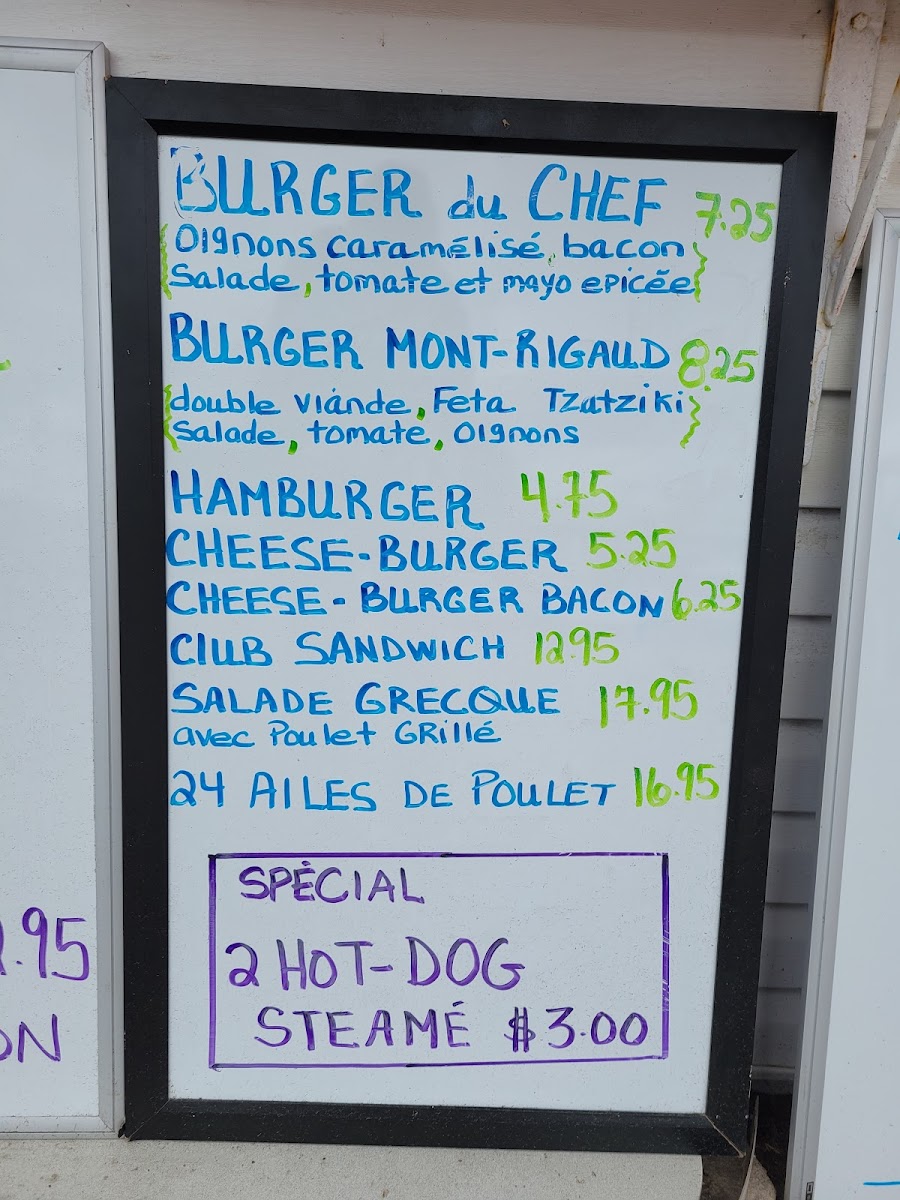 BURGER du CHEF 7.25
Oignons caramélisé, bacon
Salade, tomate et mayo epicée
BURGER MONT-RIGAUD 8.25
double viande, Feta Tzatziki
Salade, tomate, oignons
HAMBURGER 4.75
CHEESE-BURGER 5.25
CHEESE-BURGER BACON 6.25
CLUB SANDWICH 12.95
SALADE GRECQUE 17.95
avec Poulet Grillé
24 AILES DE POULET 16.95
SPÉCIAL
2 HOT-DOG
STEAMÉ $3.00
.95
ON